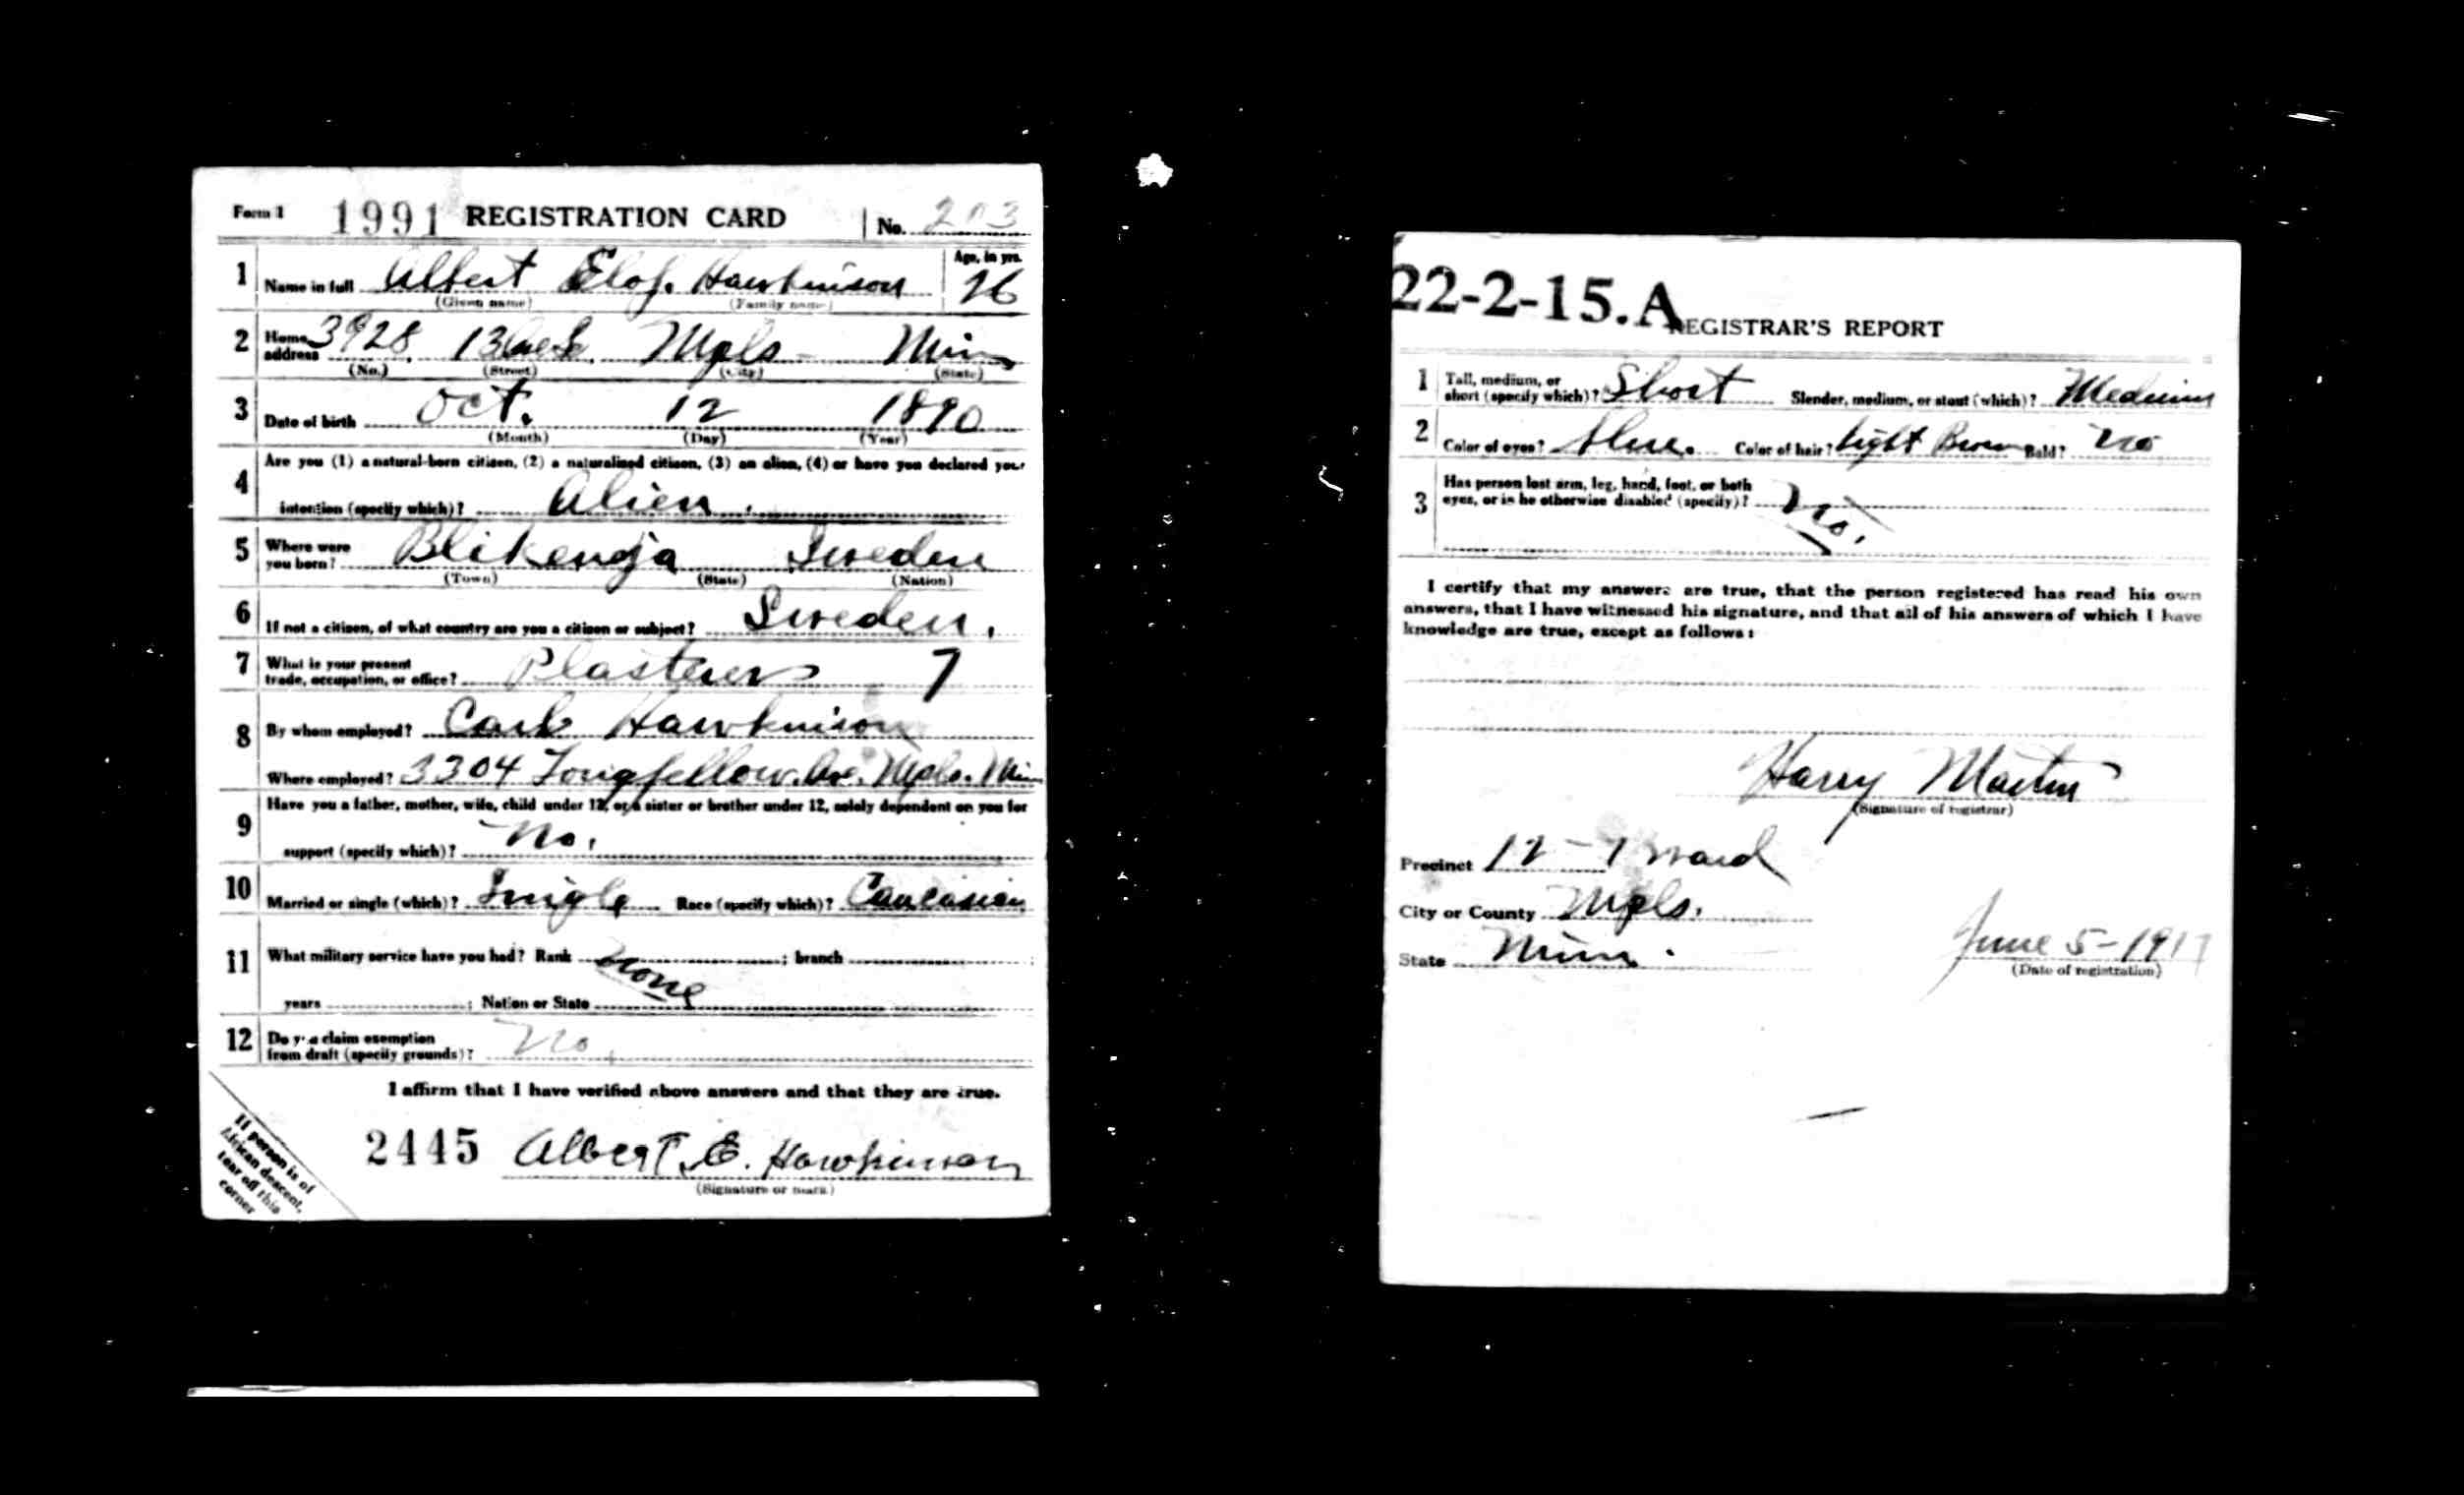 Form 1 1991 REGISTRATION CARD No. 203
1 Name in full Albert Elof. Hawkinson Age, in yrs. 26
(Given name) (Family name)
2 Home address 3928 13 Ave S. Mpls - Minn
(No.) (Street) (City) (State)
3 Date of birth Oct. 12 1890
(Month) (Day) (Year)
4 Are you (1) a natural-born citizen, (2) a naturalized citizen, (3) an alien, (4) or have you declared your
intention (specify which)? Alien.
5 Where were you born? Blikenga Sweden
(Town) (State) (Nation)
6 If not a citizen, of what country are you a citizen or subject? Sweden.
7 What is your present trade, occupation, or office? Plasterer 7
8 By whom employed? Carl Hawkinson
Where employed? 3304 Longfellow. Av. Mpls. Minn
9 Have you a father, mother, wife, child under 12, or a sister or brother under 12, solely dependent on you for
support (specify which)? No.
10 Married or single (which)? Single Race (specify which)? Caucasian
11 What military service have you had? Rank None ; branch ;
years ; Nation or State
12 Do you claim exemption from draft (specify grounds)? No.
I affirm that I have verified above answers and that they are true.
2445 Albert. E. Hawkinson
(Signature or mark)
If person is of
African descent,
tear off this
corner
22-2-15.A REGISTRAR'S REPORT
1 Tall, medium, or short (specify which)? Short Slender, medium, or stout (which)? Medium
2 Color of eyes? Blue. Color of hair? Light Brown Bald? No
3 Has person lost arm, leg, hand, foot, or both
eyes, or is he otherwise disabled (specify)? No.
I certify that my answers are true, that the person registered has read his own
answers, that I have witnessed his signature, and that all of his answers of which I have
knowledge are true, except as follows:
Harry Martin
(Signature of registrar)
Precinct 12 - 7 Ward
City or County Mpls.
State Minn. June 5 - 1917
(Date of registration)